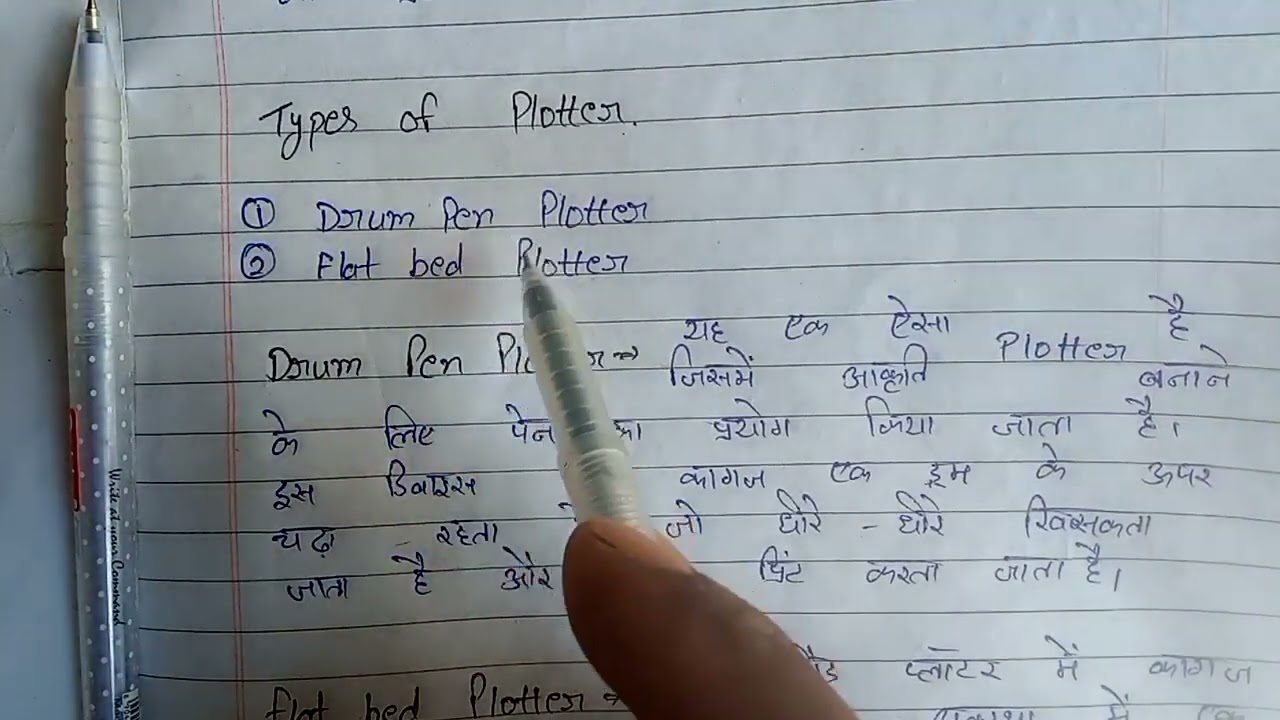 Types of Plotter.
① Drum Pen Plotter
② Flat bed Plotter
Drum Pen यह एक ऐसा Plotter है
जिसमें आकृति बनाने
के लिए पेन का प्रयोग किया जाता है।
इस डिवाइस कागज एक ड्रम के ऊपर
चढ़ा रहता जो धीरे - धीरे खिसकता
जाता है और प्रिंट करता जाता है।
flat bed Plotter प्लॉटर में कागज
Write at your Command